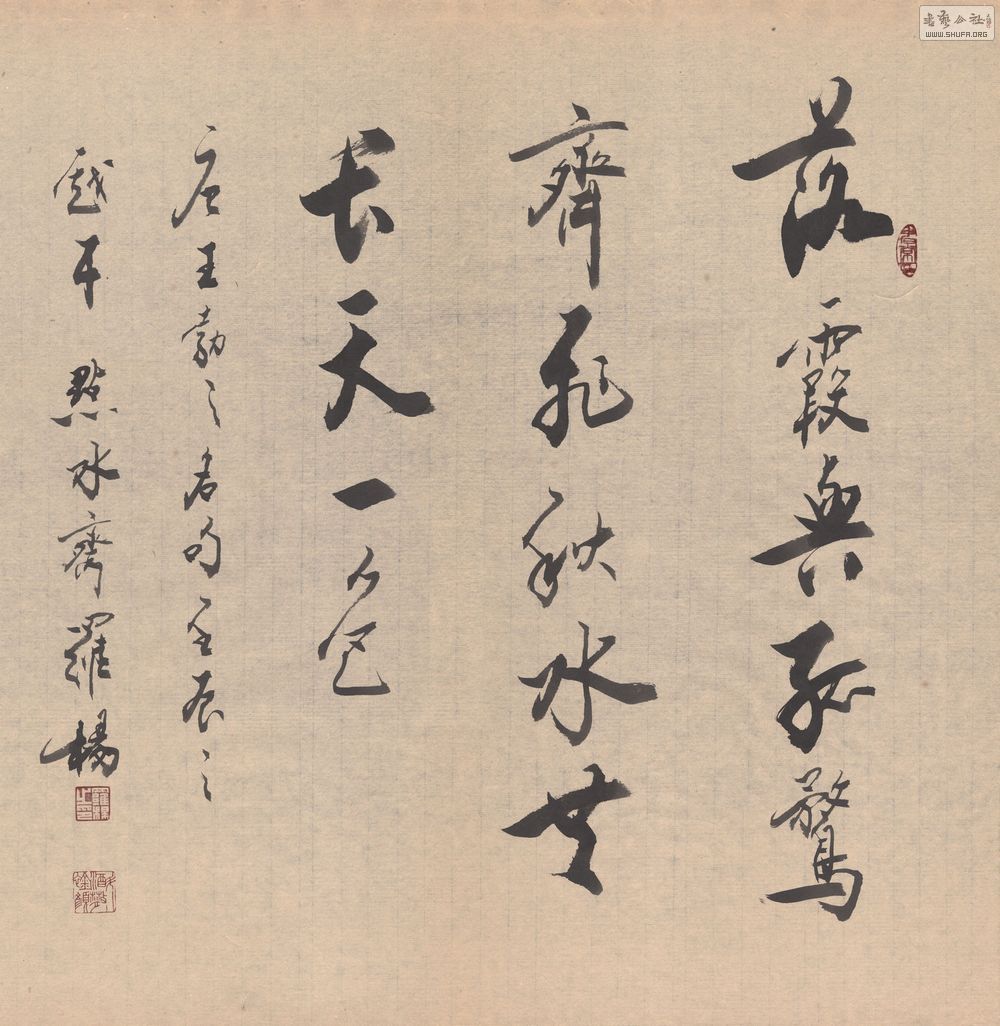 書藝公社
WWW.SHUFA.ORG
落霞與孤鶩
齊飛秋水共
長天一色
唐王勃之名句壬辰之
歲于點水齋羅楊
羅楊之印